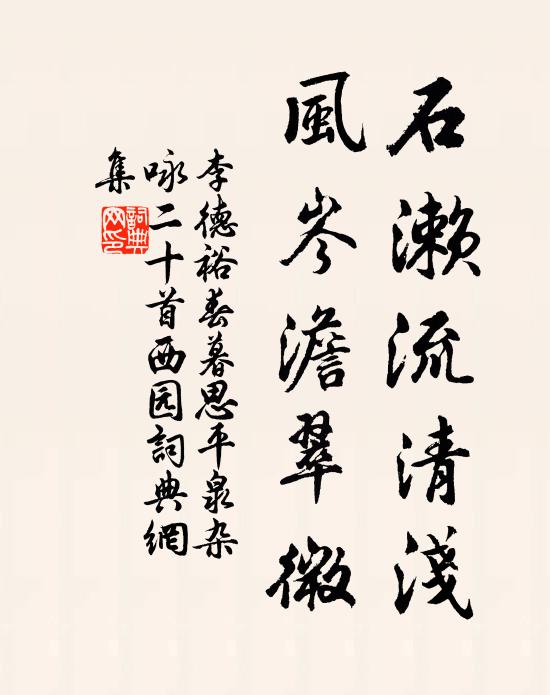 石濑流清淺
風岑澹翠微
李德裕春暮思平泉杂
咏二十首西园詞典網
集
詞典
网印